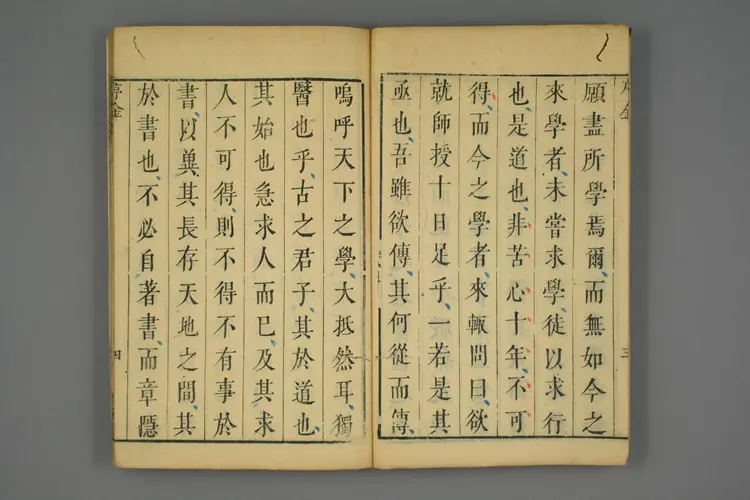 願盡所學焉爾而無如今之
來學者未嘗求學徒以求行
也是道也非苦心十年不可
得而今之學者來輒問曰欲
就師授十日足乎一若是其
亟也吾雖欲傳其何從而傳
三
嗚呼天下之學大抵然耳獨
醫也乎古之君子其於道也
其始也急求人而已及其求
人不可得則不得不有事於
書以冀其長存天地之間其
於書也不必自著書而章隱
四